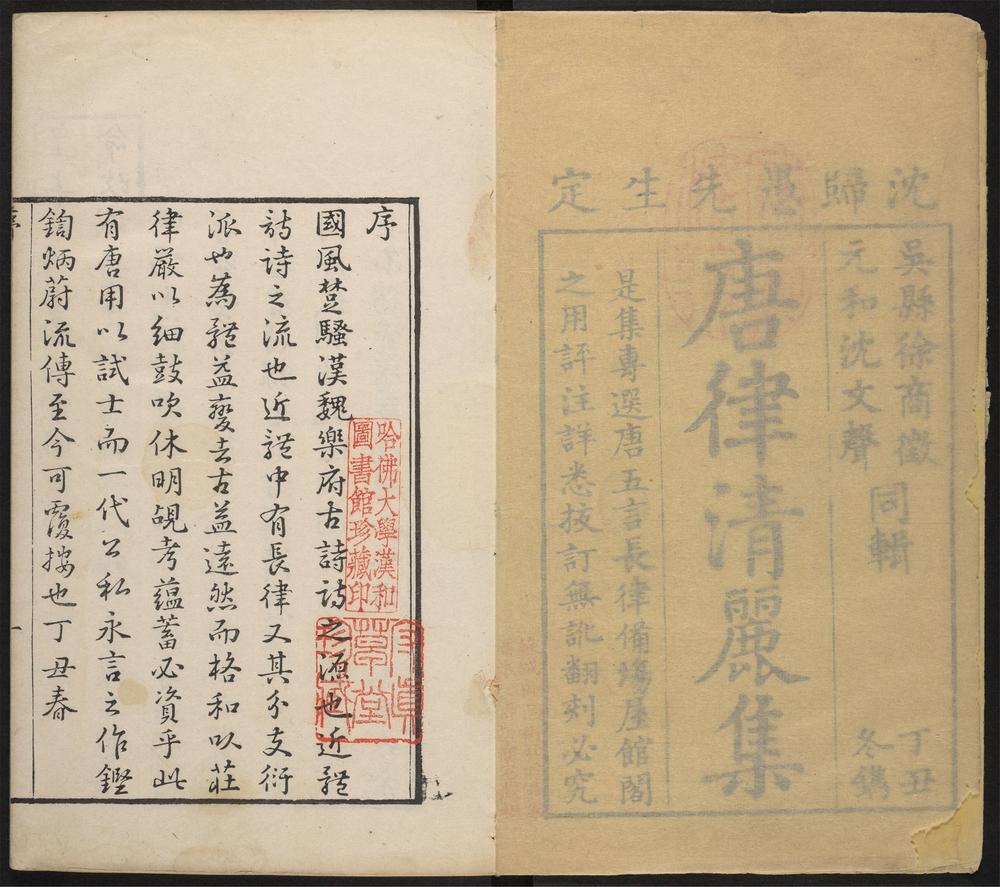 沈歸愚先生定
吳縣徐商徵
元和沈文聲
同輯
丁丑
冬鐫
唐律清麗集
是集專選唐五言長律備場屋館閣
之用評注詳悉挍訂無訛翻刻必究
序
國風楚騷漢魏樂府古詩詩之源也近體
詩詩之流也近體中有長律又其分支衍
派也為體益變去古益遠然而格和以莊
律嚴以細鼓吹休明覘考蘊蓄必資乎此
有唐用以試士而一代公私永言之作鏗
鍧炳蔚流傳至今可覆按也丁丑春
序
一
哈佛大學漢和
圖書館珍藏印
草堂